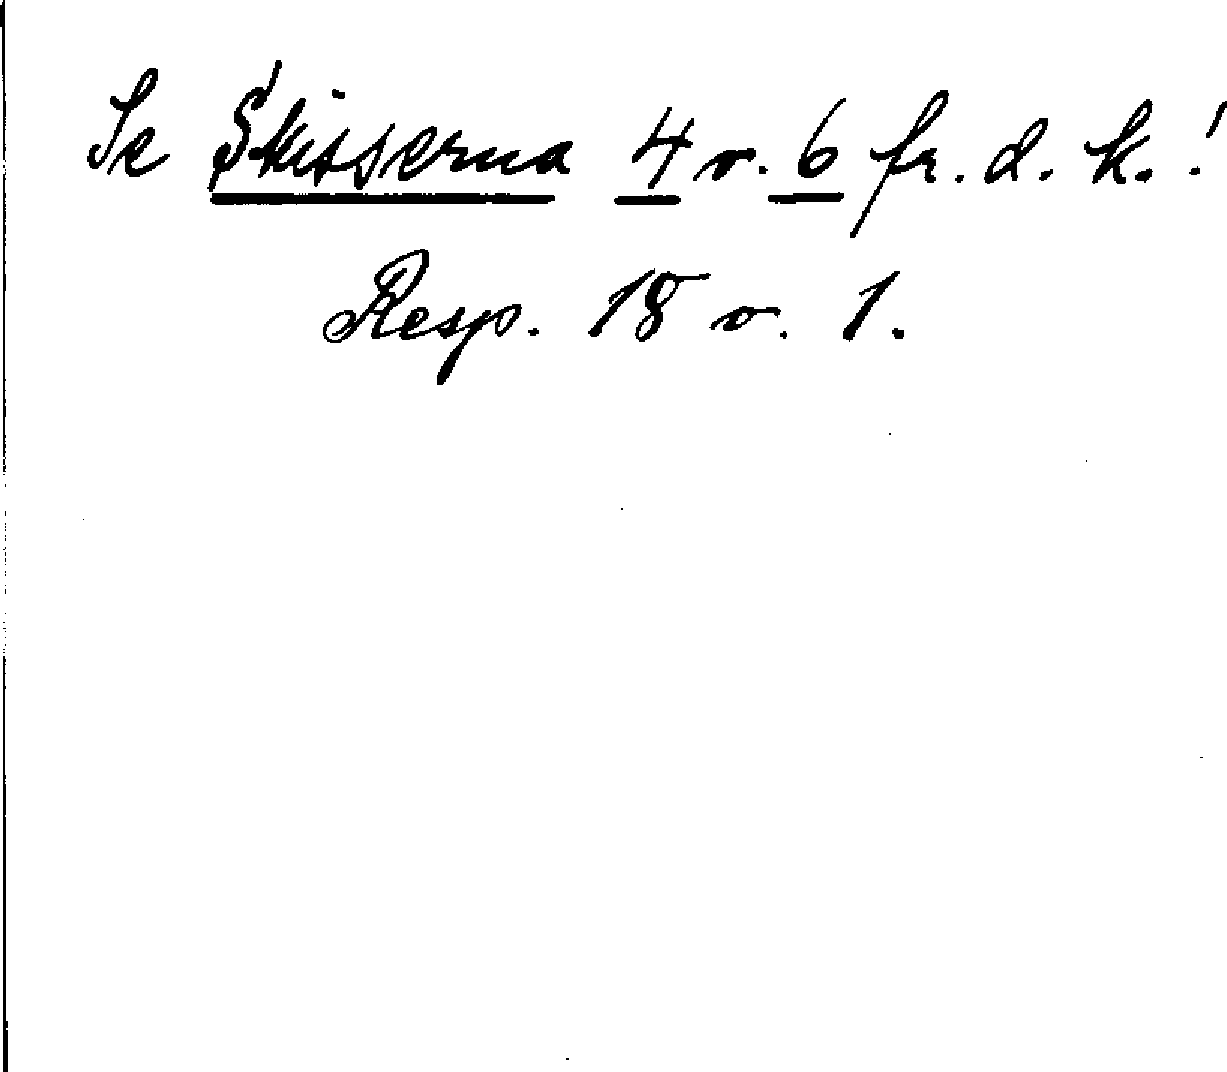 Se Skisserna 4 v. 6 fr. d. k.!
Resp. 18 v. 1.